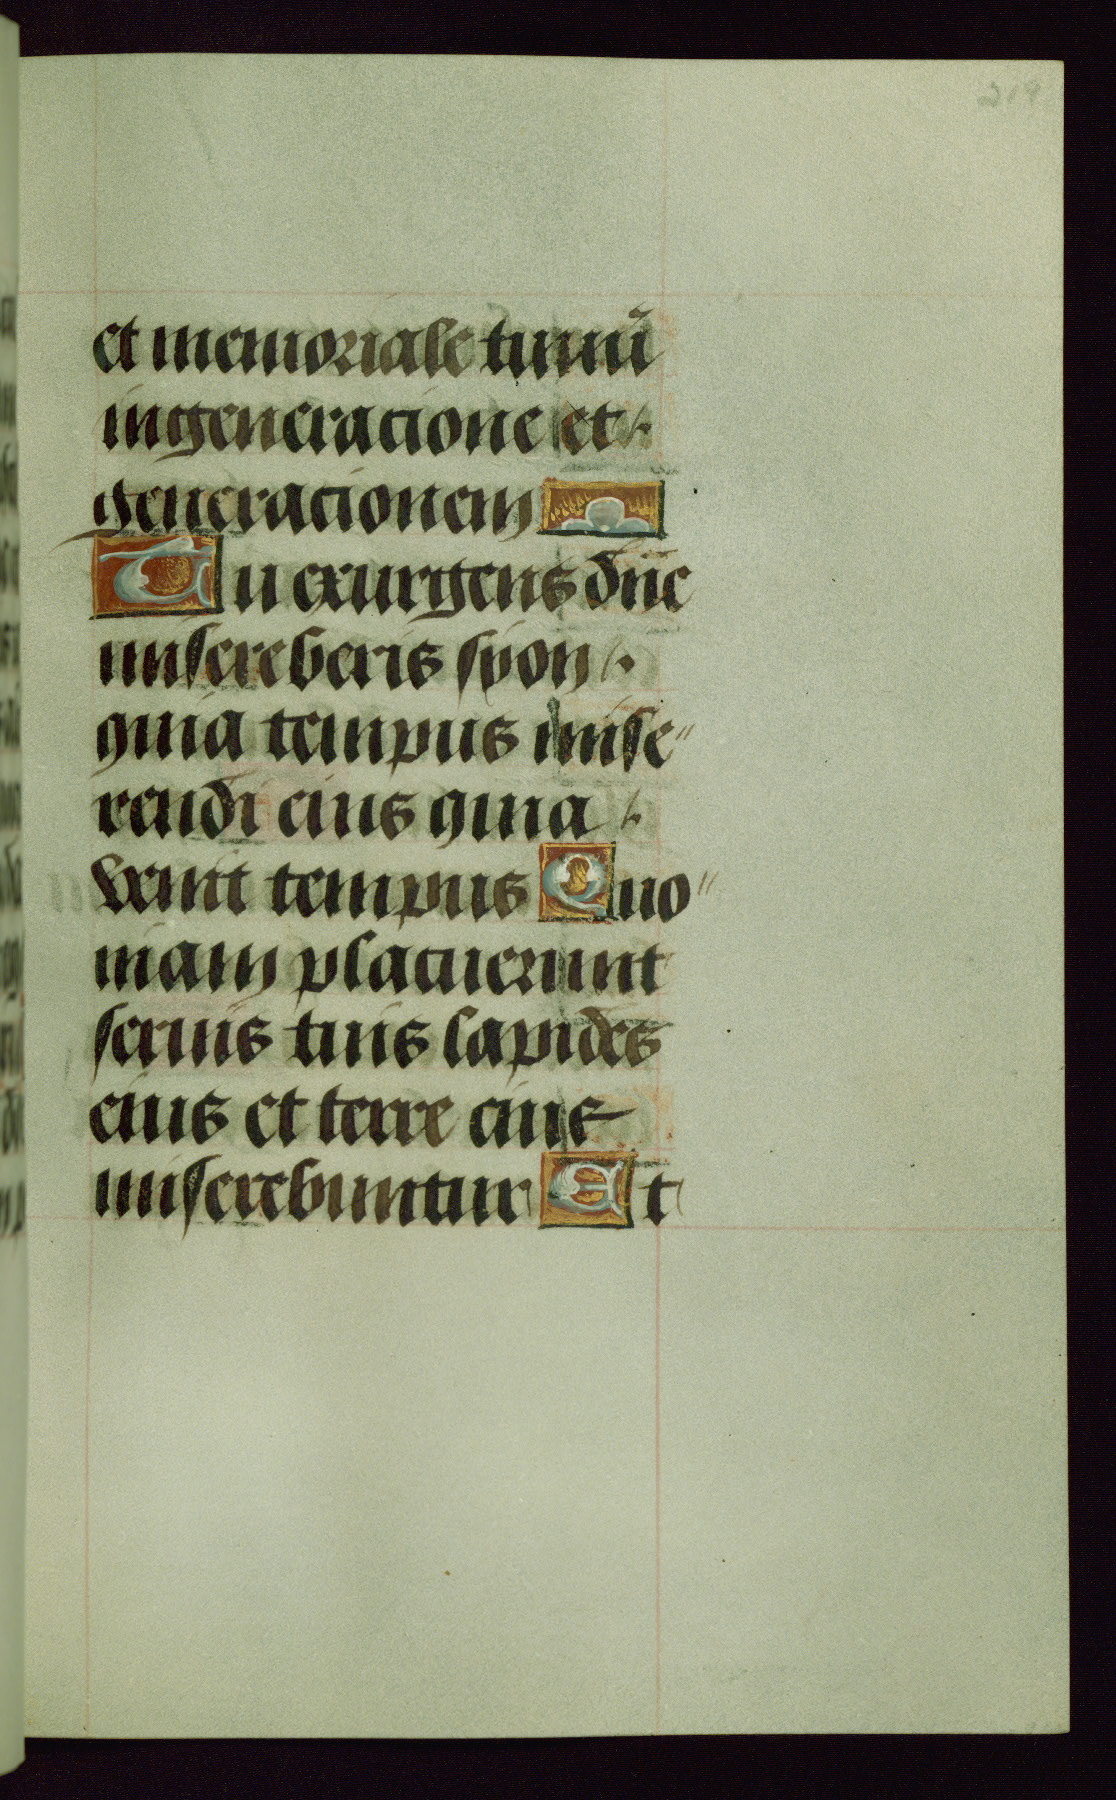 219
et memoriale tuuū
in generacione et
generacionem
Tu exurgens dn̄e
misereberis syon
quia tempus mise"
rendi eius quia
venit tempus Quo"
niam placuerunt
seruis tuis lapides
eius et terre eius
miserebuntur Et